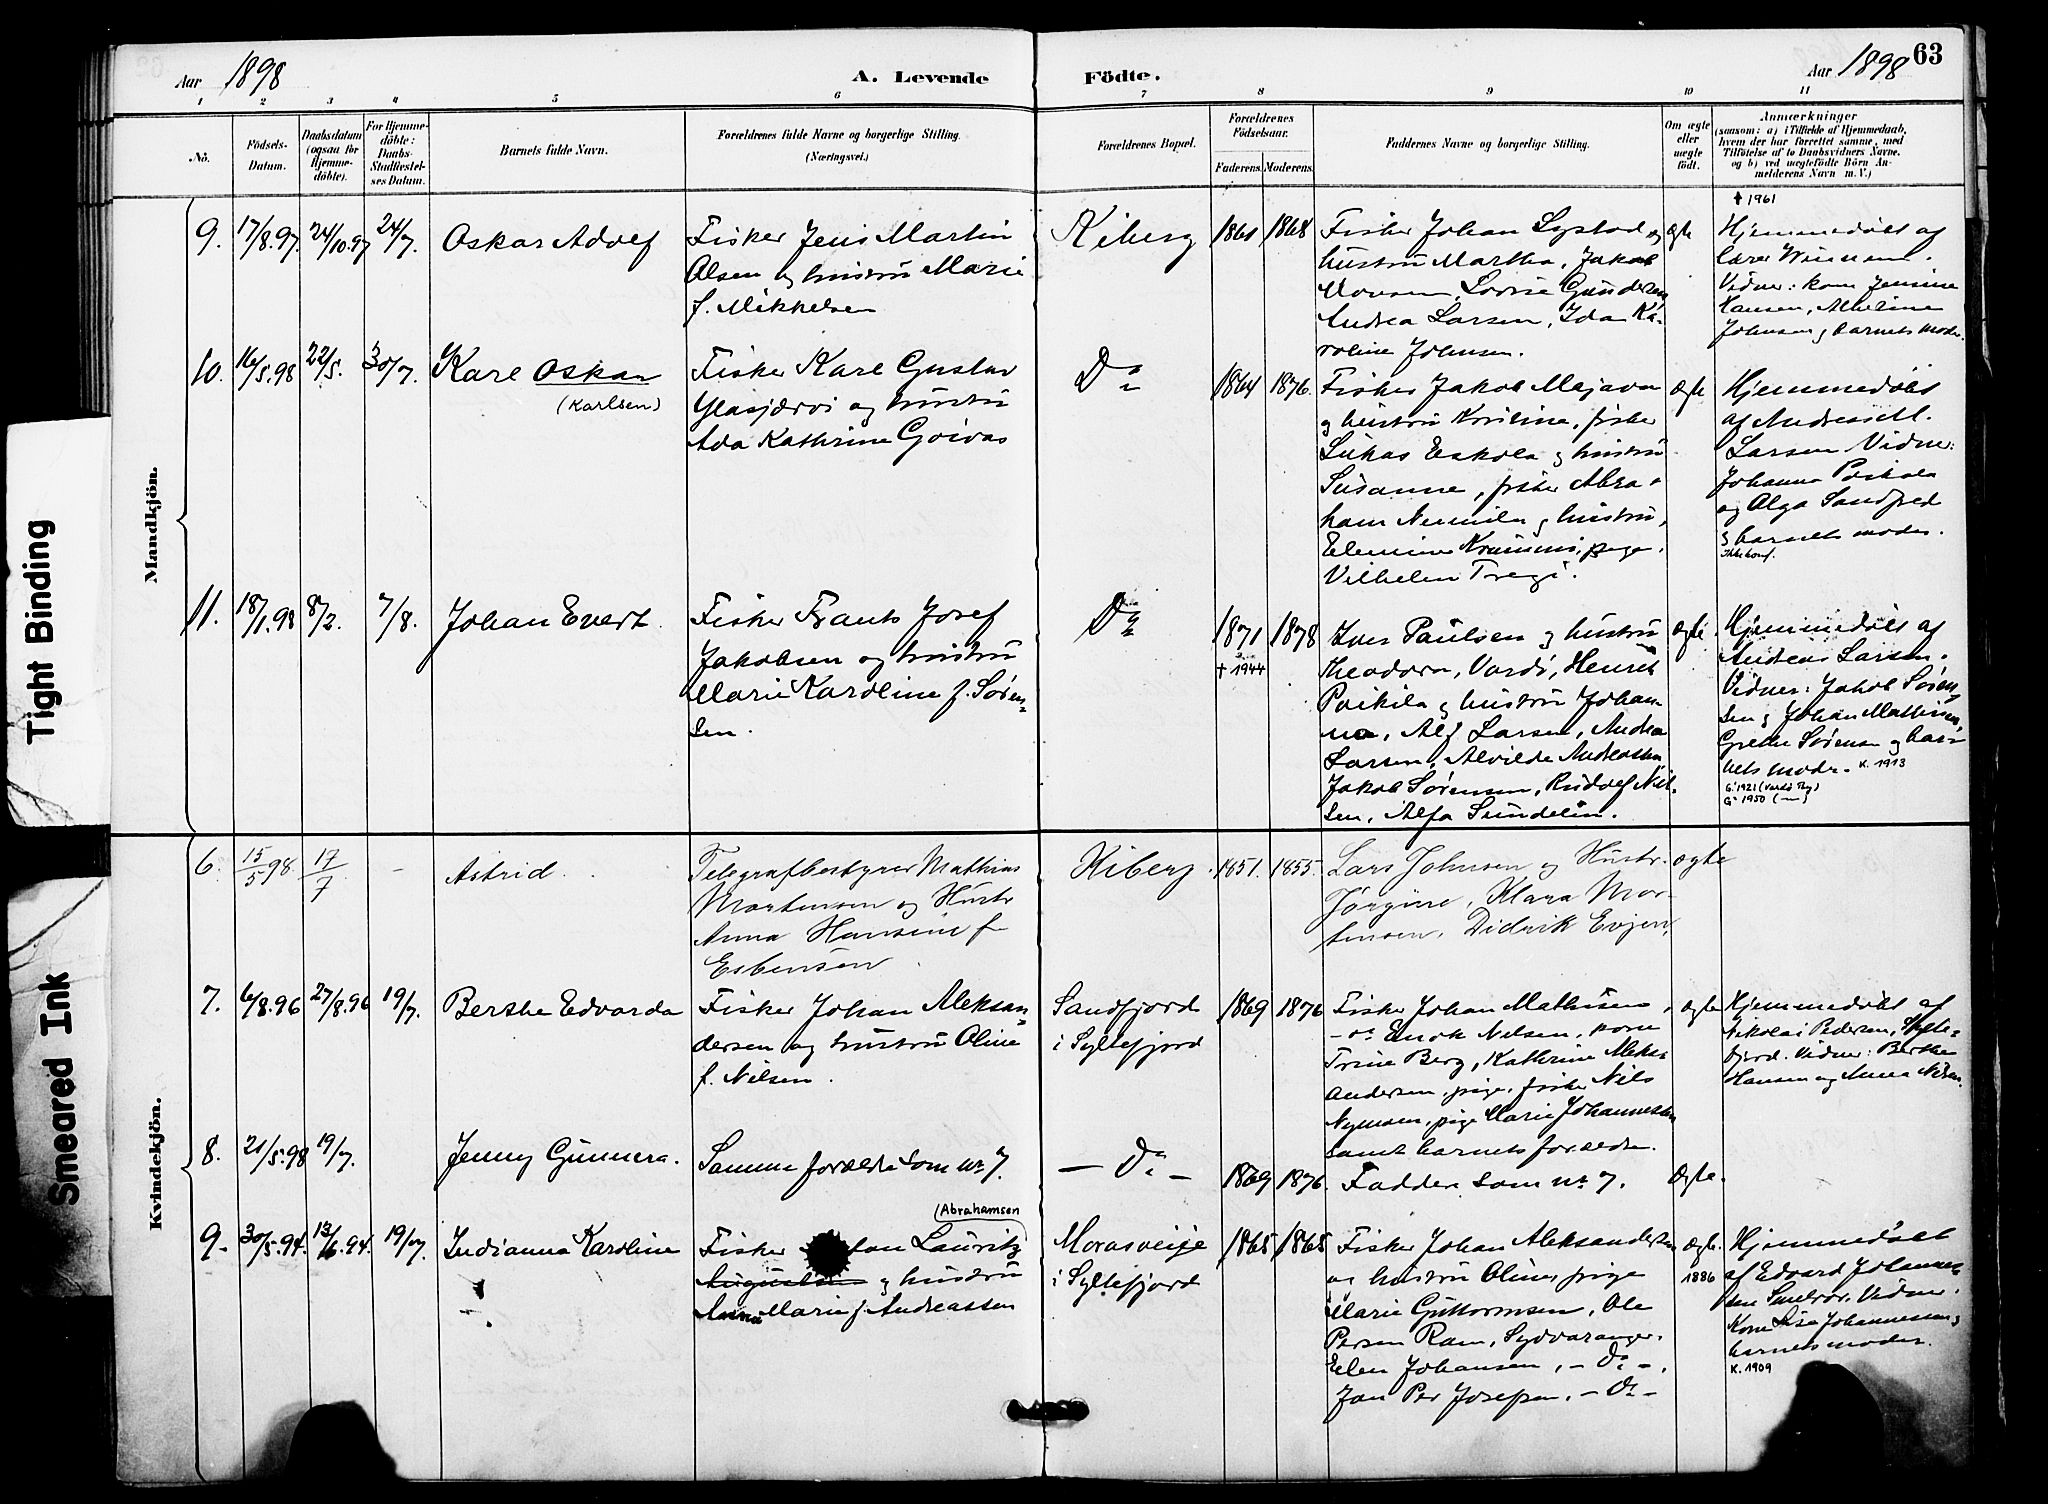 Aar 1898
A. Levende Födte.
Aar 1898
63
1 2 3 4 5 6 7 8 9 10 11
No.
Födsels-
Datum.
Daabsdatum
(ogsaa for
Hjemme-
döbte).
For Hjemme-
döbte:
Daabs-
Stadfæstel-
ses Datum.
Barnets fulde Navn.
Forældrenes fulde Navne og borgerlige Stilling.
(Næringsvei.)
Forældrenes Bopæl.
Forældrenes
Födselsaar.
Faderens.
Moderens.
Faddernes Navne og borgerlige Stilling.
Om ægte
eller
uægte
födt.
Anmærkninger
(saasom: a) i Tilfælde af Hjemmedaab,
hvem der har forrettet samme, med
Tilföielse af to Daabsvidners Navne,
og b) ved uægtefödte Börn An-
melderens Navn m. V.)
Mandkjön.
9. 17/8.97. 24/10.97 24/7. Oskar Adolf
Fisker Jens Martin
Olsen og hustru Marie
f. Mikkelsen
Kiberg
1861 1868
Fisker Johan Lystad og
hustru Martha, Jakob
Monsen, Lovise Gundersen
Andrea Larsen, Ida Ka-
roline Johnsen.
ægte
✝ 1961
Hjemmedöbt af
lærer
Vidner: kone Jensine
Hansen,
Johnsen og barnets moder.
10. 16/5.98 22/5. 30/7. Karl Oskar
(Karlsen)
Fisker Karl Gustav
Ylasjærvi og hustru
Ada Kathrine Goivas
Do
1864 1876.
Fisker Jakob Mejavar
og hustru Kristine, fisker
Lukas Eskola og hustru
Susanne, fisker Abra-
ham Niemila og hustru,
Elemine pige
Vilhelm
ægte
Hjemmedöbt
af Andreas M.
Larsen Vidner:
Johanna Poikila
og Olga Sandfred
& barnets moder.
Ikke konf.
11. 18/1.98 8/2. 7/8. Johan Evert.
Fisker Frants Josef
Jakobsen og hustru
Marie Karoline f. Sören-
sen.
Do
1871 1878
✝ 1944
Iver Paulsen og hustru
Theodora, Vardö, Henrik
Poikila og hustru Johan-
na, Alf Larsen, Andrea
Larsen, Alvilde Andreassen
Jakob Sörensen, Rudolf Niel-
sen, Alfa Sundelin.
ægte
Hjemmedöbt af
Andreas Larsen.
Vidner: Jakob Sören-
sen og Johan Mathisen,
Grethe Sörensen og bar-
nets moder. K. 1913
G. 1921 (Vardö By)
G. 1950 (—)
Kvindekjön.
6. 15/5 98. 17/7 - Astrid.
Telegrafbestyrer Mathias
Mortensen og Hustr
Anna Hansine f.
Esbensen.
Kiberg.
1851. 1855.
Lars Johnsen og Hustr.
Jörgine, Klara Mor-
tensen, Didrik Evjen.
ægte
7. 6/8.96 27/8.96 19/7. Berthe Edvarda
Fisker Johan Aleksan-
dersen og hustru Oline
f. Nilsen.
Sandfjord
i Syltefjord
1869 1876
Fisker Johan Mathisen,
- Do Enok Nilsen, kone
Trine Berg, Kathrine Aleks-
andersen, pige, fisker Nils
Nymoen, pige Marie Johannessen
samt barnets forældre.
ægte
Hjemmedöbt af
Nikolai Pedersen, Sylte-
fjord. Vidner: Berthe
Hansen og Anna Nilsen.
8. 21/5.98 19/7. Jenny Gunnera.
Samme forældre som nr 7.
- Do -
1869 1876.
Faddere som nr. 7.
Ægte.
9. 30/5.94. 13/6.94. 19/7. Indianna Karoline
(Abrahamsen
Fisker Lauritz
Augustsen og hustru
Anna Marie f. Andreassen
Morasveije
i Syltefjord
1865 1865
Fisker Johan Aleksandersen
og hustru Oline, pige
Marie Guttormsen, Ole
Persen Ram, Sydvaranger.
Ellen Johansen, - Do -,
Jon Per Josefsen, - Do -
ægte.
1886
Hjemmedöbt
af Edvard Johannes-
sen Smelror. Vidner:
Kone Lisa Johannessen og
barnets moder.
K. 1909
Tight Binding
Smeared Ink